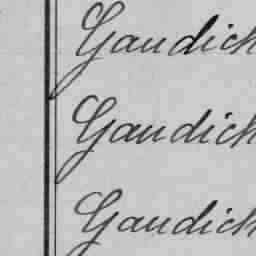 Gaudich
Gaudich
Gaudich